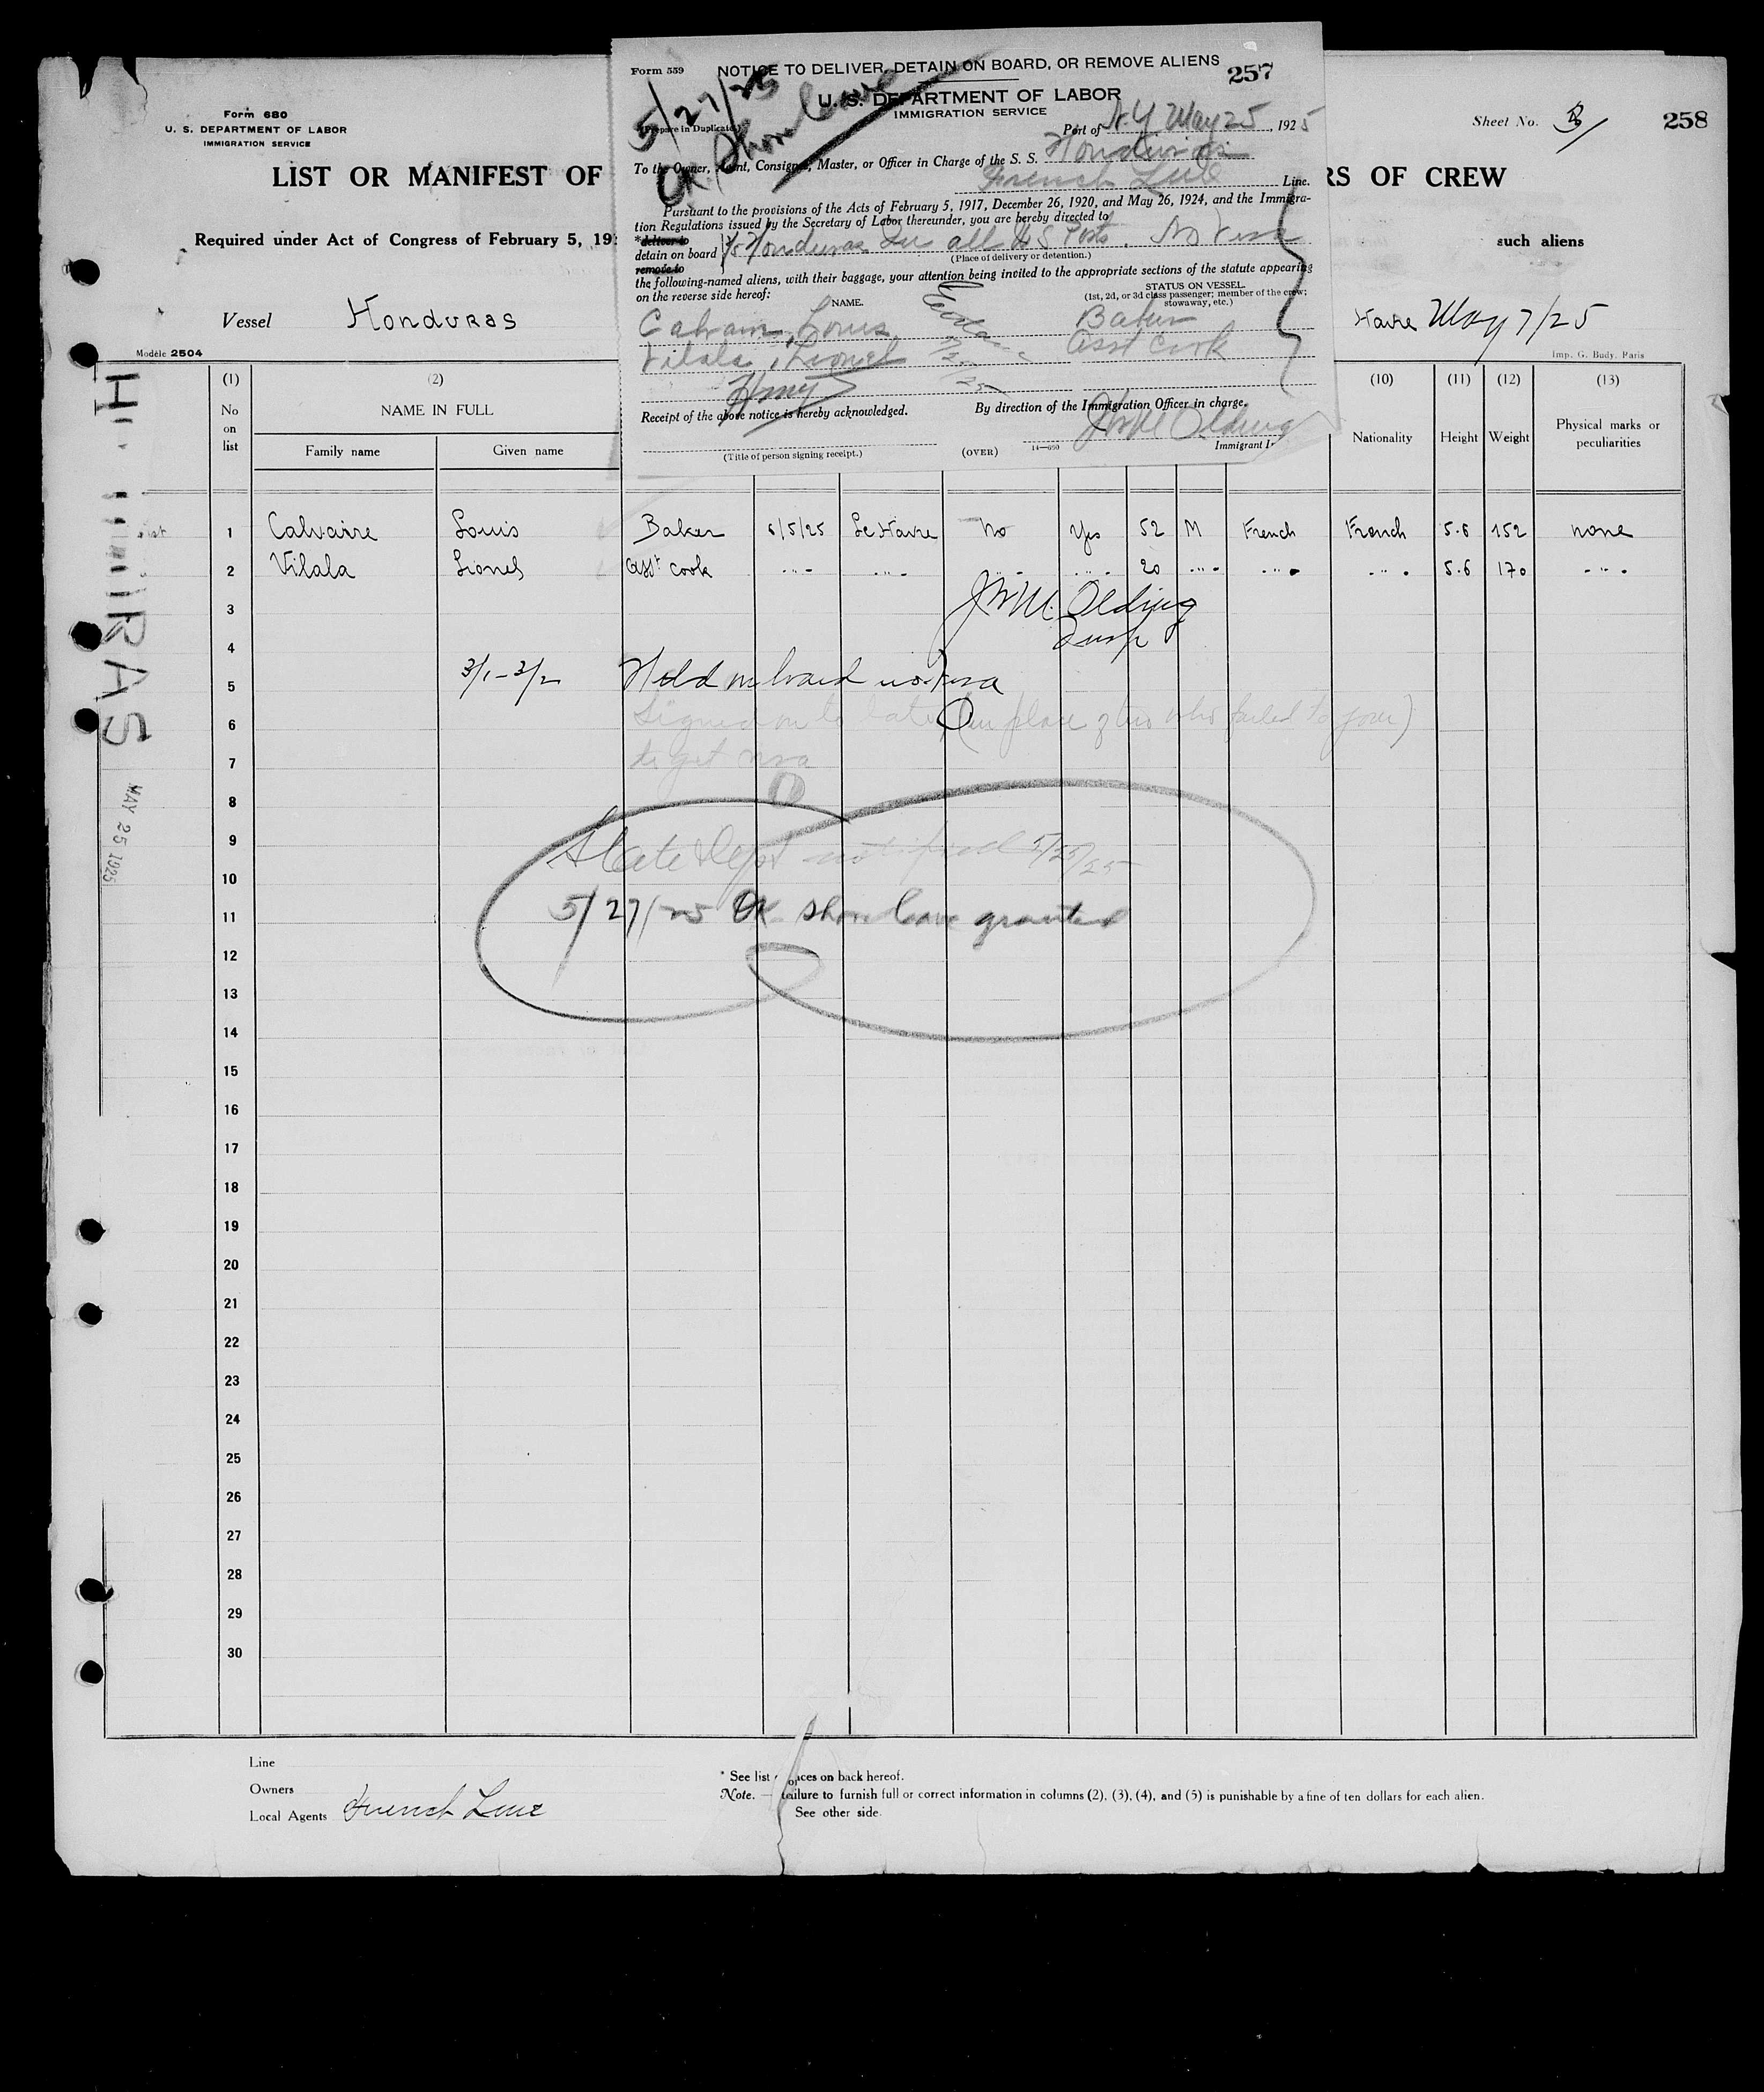 Form 559
NOTICE TO DELIVER, DETAIN ON BOARD, OR REMOVE ALIENS
257
U. S. DEPARTMENT OF LABOR
IMMIGRATION SERVICE
5/27/25
OK. Shore leave
(Prepare in Duplicate)
Port of N.Y. May 25, 1925
To the Owner, Agent, Consignee, Master, or Officer in Charge of the S. S. Honduras
French Line Line.
Pursuant to the provisions of the Acts of February 5, 1917, December 26, 1920, and May 26, 1924, and the Immigra-
tion Regulations issued by the Secretary of Labor thereunder, you are hereby directed to
*deliver to
detain on board SS Honduras in all US Ports. No Visa
remove to
(Place of delivery or detention.)
the following-named aliens, with their baggage, your attention being invited to the appropriate sections of the statute appearing
on the reverse side hereof:
NAME.
STATUS ON VESSEL.
(1st, 2d, or 3d class passenger; member of the crew;
stowaway, etc.)
Calvair, Louis Baker
Vilala, Lionel Asst Cook
5/25/25
Receipt of the above notice is hereby acknowledged.
By direction of the Immigration Officer in charge.
JWM Olding
(Title of person signing receipt.)
(OVER)
14—650
Immigrant I
Form 680
U. S. DEPARTMENT OF LABOR
IMMIGRATION SERVICE
Sheet No. 3
258
LIST OR MANIFEST OF RS OF CREW
Required under Act of Congress of February 5, 19 such aliens
Vessel Honduras Havre May 7/25
Modèle 2504
Imp. G. Budy. Paris
(1) (2) (10) (11) (12) (13)
No on list NAME IN FULL Nationality Height Weight Physical marks or peculiarities
Family name Given name
1 Calvaire Louis Baker 6/5/25 Le Havre No Yes 52 M French French 5.6 152 none
2 Vilala Lionel Asst cook -"- -"- -"- -"- 20 -"- -"- -"- 5.6 170 -"-
3 JWM. Olding
4 Insp
5 3/1-3/2 Held on board no visa
6 Signed on to late (in place of two who failed to join)
7 to get visa
8
9 State Dept notified 5/25/25
10
11 5/27/25 OK shore leave granted
12
13
14
15
16
17
18
19
20
21
22
23
24
25
26
27
28
29
30
HONDURAS
MAY 25 1925
Line
Owners
Local Agents French Line
* See list of races on back hereof.
Note. — Failure to furnish full or correct information in columns (2), (3), (4), and (5) is punishable by a fine of ten dollars for each alien.
See other side.